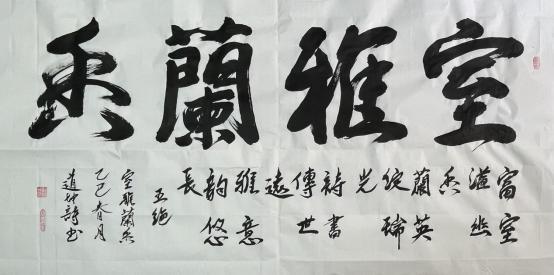 室雅蘭香
富室
溢幽
香
蘭英
綻瑞
光
詩書
傳世
遠
雅意
韵悠
長
五绝
室雅蘭香
乙巳春月
詩书